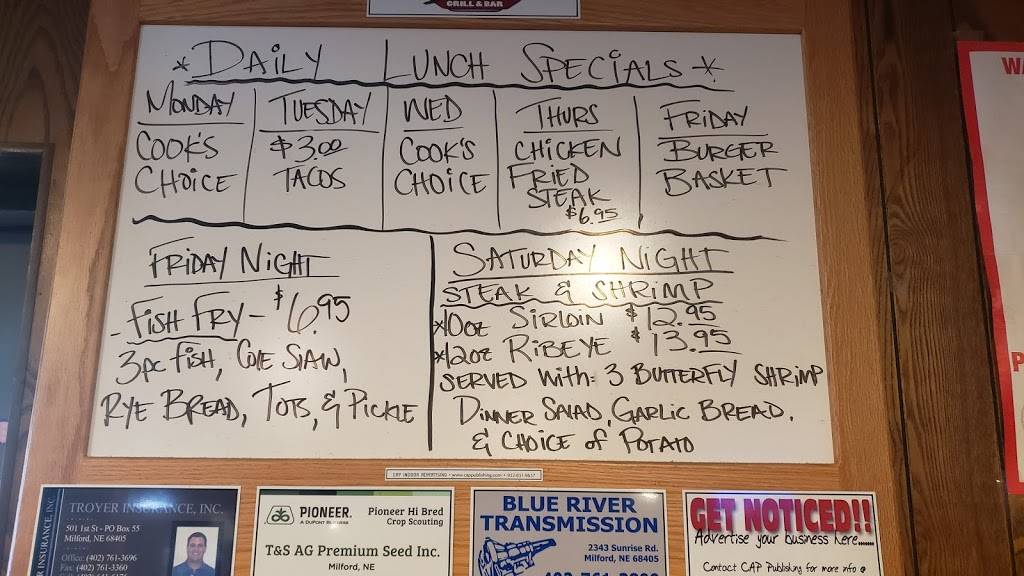 GRILL & BAR
* DAILY LUNCH SPECIALS *
MONDAY
COOK'S
CHOICE
TUESDAY
$3.00
TACOS
WED
COOK'S
CHOICE
THURS
CHICKEN
FRIED
STEAK
$6.95
FRIDAY
BURGER
BASKET
FRIDAY NIGHT
- FISH FRY - $6.95
3pc FISH, COLE SLAW,
RYE BREAD, TOTS, & PICKLE
SATURDAY NIGHT
STEAK & SHRIMP
*10oz SIRLOIN $12.95
*12oz RIBEYE $13.95
SERVED WITH: 3 BUTTERFLY SHRIMP
DINNER SALAD, GARLIC BREAD,
& CHOICE OF POTATO
CAP INDOOR ADVERTISING • www.cappublishing.com •
TROYER INSURANCE, INC.
501 1st St - PO Box 55
Milford, NE 68405
Office: (402) 761-3696
Fax: (402) 761-3360
INSURANCE, INC
PIONEER.
A DUPONT BUSINESS
Pioneer Hi Bred
Crop Scouting
T&S AG Premium Seed Inc.
Milford, NE
BLUE RIVER
TRANSMISSION
2343 Sunrise Rd.
Milford, NE 68405
GET NOTICED!!
Advertise your business here......
Contact CAP Publishing for more info @